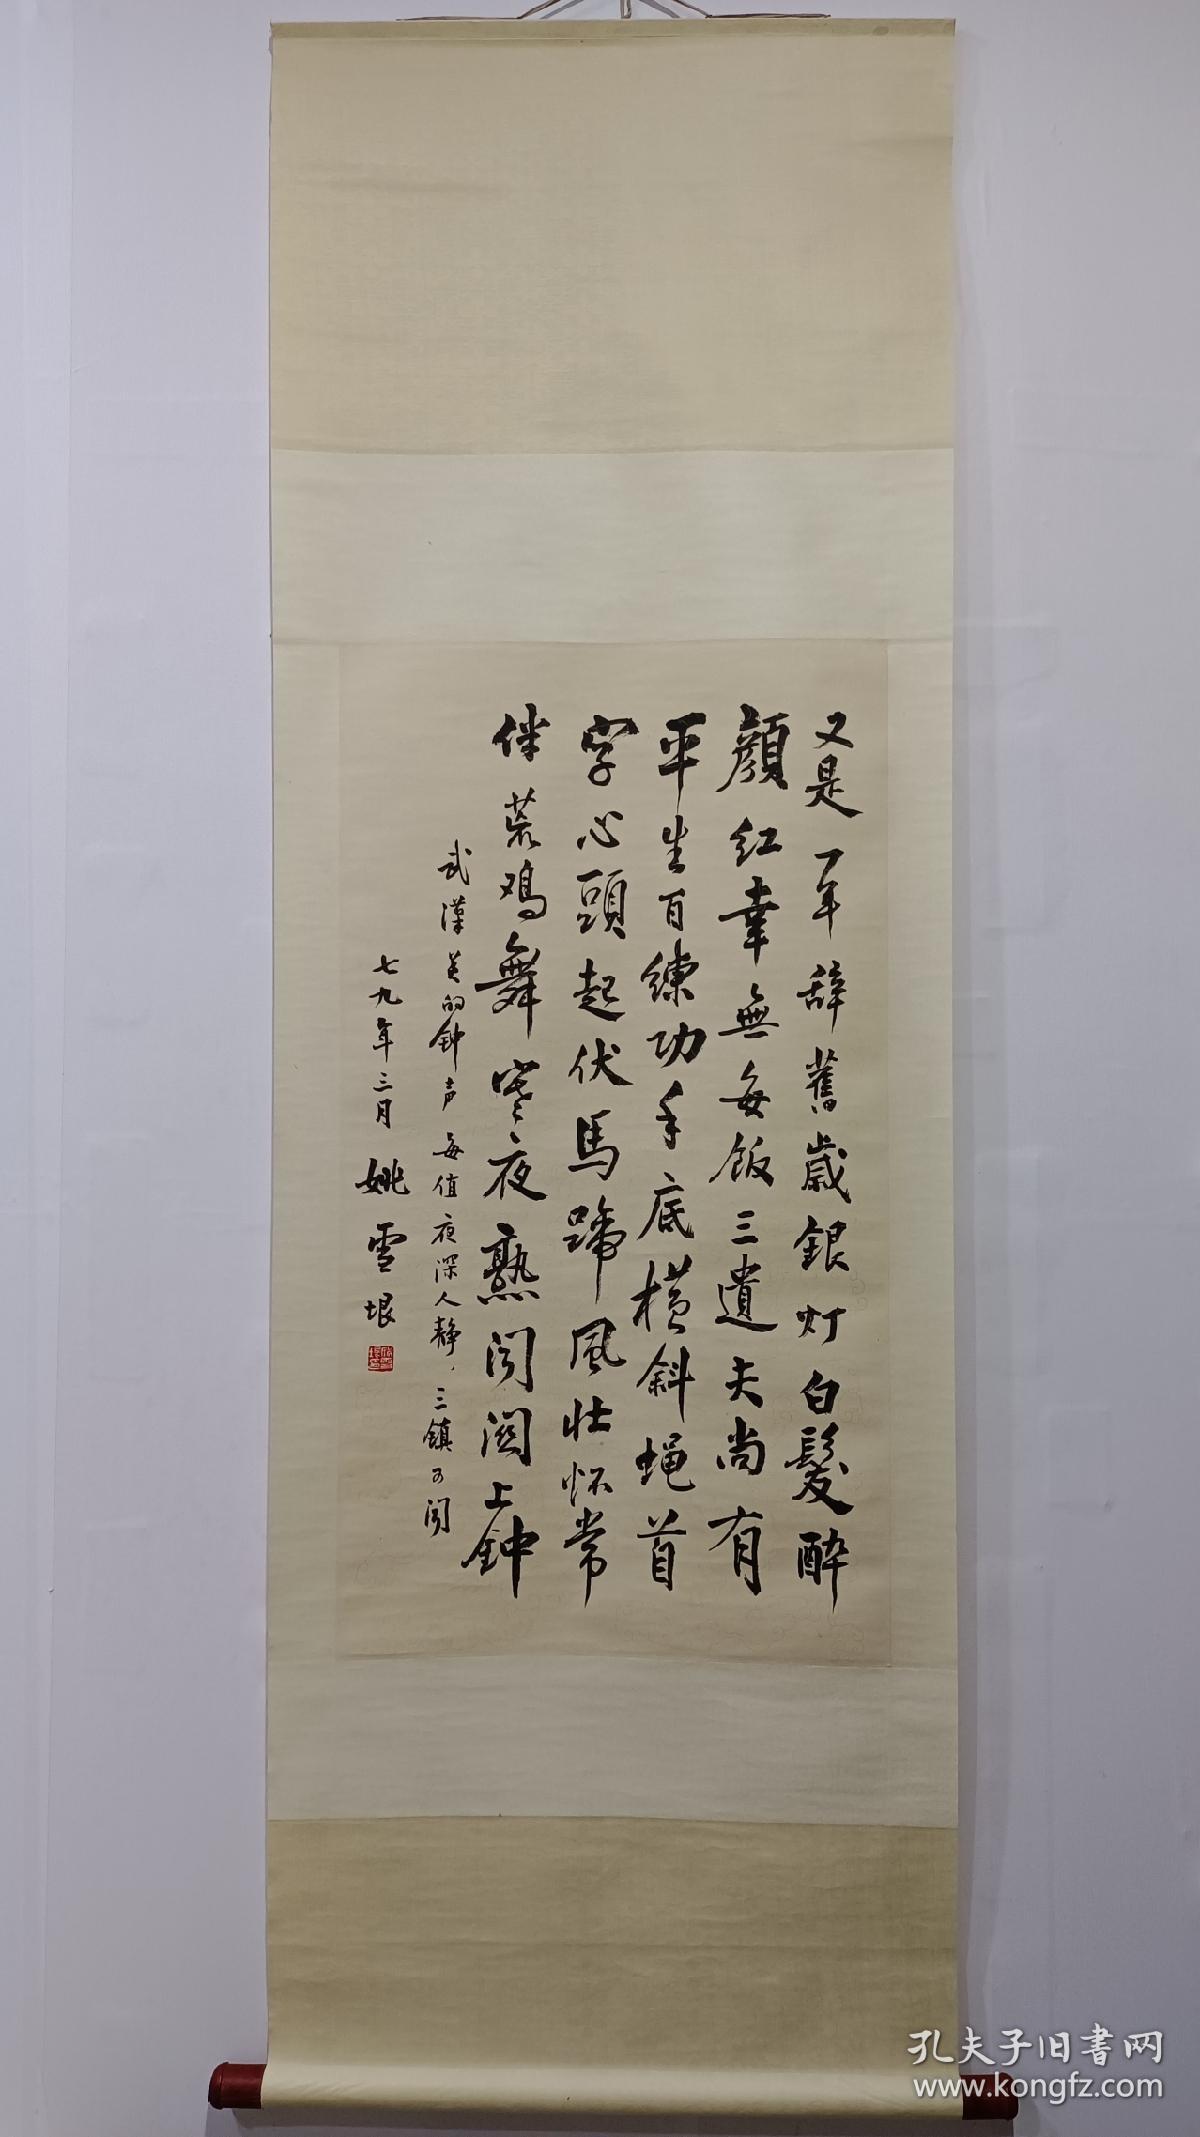 又是一年辞舊歲銀灯白髮醉
顔红幸無每饭三遺矢尚有
平生百練功手底横斜蝇首
字心頭起伏馬蹄風壮怀常
伴荒鸡舞寒夜熟闻關上钟
武漢关的钟声每值夜深人静，三鎮可闻
七九年三月 姚雪垠
孔夫子旧书网
www.kongfz.com